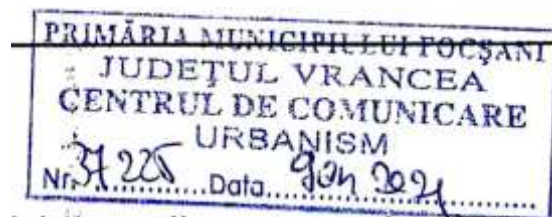 PRIMĂRIA MUNICIPIULUI FOCŞANI
JUDEŢUL VRANCEA
CENTRUL DE COMUNICARE
URBANISM
Nr. 37225 Data